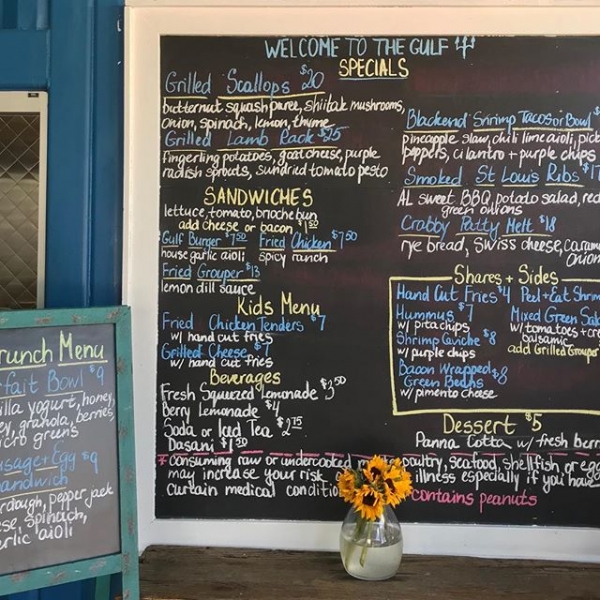 WELCOME TO THE GULF
SPECIALS
Grilled Scallops $20
butternut squash puree, shiitak mushrooms,
onion, spinach, lemon, thyme
Grilled Lamb Rack $25
fingerling potatoes, goat cheese, purple
radish sprouts, sundried tomato pesto
Blackend Shrimp Tacos or Bowl $
pineapple slaw, chili lime aioli,
peppers, cilantro + purple chips
Smoked St Louis Ribs
AL sweet BBQ, potato salad, red
green onions
Crabby Patty Melt $18
rye bread, Swiss cheese,
onion
SANDWICHES
lettuce, tomato, brioche bun
add cheese or bacon $1.50
Gulf Burger $7.50 Fried Chicken $7.50
house garlic aioli spicy ranch
Fried Grouper $13
lemon dill sauce
Kids Menu
Fried Chicken Tenders $7
w/ hand cut fries
Grilled Cheese $7
w/ hand cut fries
Beverages
Fresh Squeezed Lemonade $3.50
Berry Lemonade $4
Soda or Iced Tea $2.75
Dasani $1.50
Shares + Sides
Hand Cut Fries $4
Hummus $7
w/ pita chips
Shrimp Ceviche $8
w/ purple chips
Bacon Wrapped $8
Green Beans
w/ pimento cheese
Peel + Eat Shrim
Mixed Green Sala
w/ tomatoes +
balsamic
add Grilled Grouper
Dessert $5
Panna Cotta w/ fresh berr
* consuming raw or undercooked poultry, seafood, shellfish or egg
may increase your risk illness especially if you have
curtain medical conditio
contains peanuts
runch Menu
fait Bowl $9
illa yogurt, honey,
granola, berries
icro greens
usage + Egg $9
andwich
rdough, pepper jack
ese, spinach,
arlic aioli